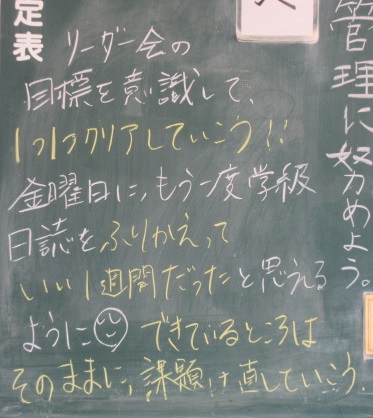 定表
リーダー会の
目標を意識して、
1つ1つクリアしていこう!!
金曜日に、もう一度学級
日誌をふりかえって
いい1週間だったと思える
ように☺できているところは
そのままに、課題は直していこう。
管理に努めよう。